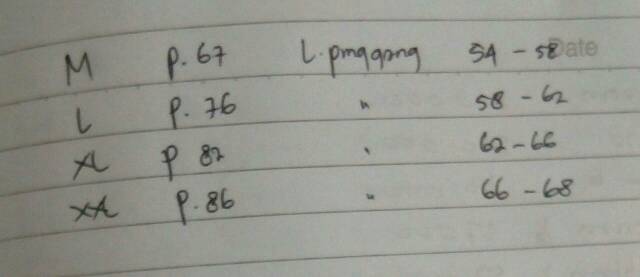 M p. 67 L. pinggang 54 - 58 Date
L p. 76 " 58 - 62
XL p 82 " 62 - 66
XXL p. 86 " 66 - 68